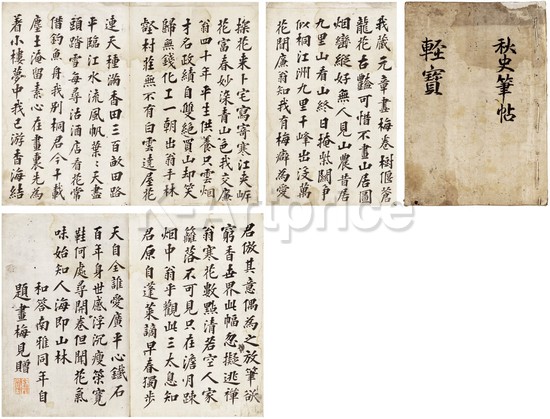 秋史筆帖
寶
我藏元章畫梅卷樹偃蒼
龍花古豔可惜不畫山居圖
烟巒縱好無人見山農昔居
九里山看山終日掩柴關爭
似桐江洲九里千峰出沒萬
花閒廉翁知我有梅癖為愛
探花来卜宅寫寄寒江夾㟁
花富春妙染青山色我交廉
翁四十年平生供養只雲烟
才名政績自雙絕買山却笑
歸無錢化工一朝出翁手林
壑村落無不有白雲遶屋花
連天種滿香田三百畝田路
平臨江水流風帆葉〻天盡
頭踏雪每尋沽酒店看花常
借釣魚舟我别桐君今十載
塵土淹留素心在畫裏先為
着小樓夢中我已游香海結
君倣其意偶為之放筆欲
窮香世界此幅忽擬逃禪
翁寒花數點清若空人家
籬落不可見只在澹月疎
烟中翁乎觀此三太息知
君原自蓬萊謫早春獨步
天自全誰愛廣平心鐵石
百年身世感浮沉瘦筇寬
鞋何處尋開卷但聞花氣
味始知人海即山林
和答南雅同年自
題畫梅見贈
K-Artprice